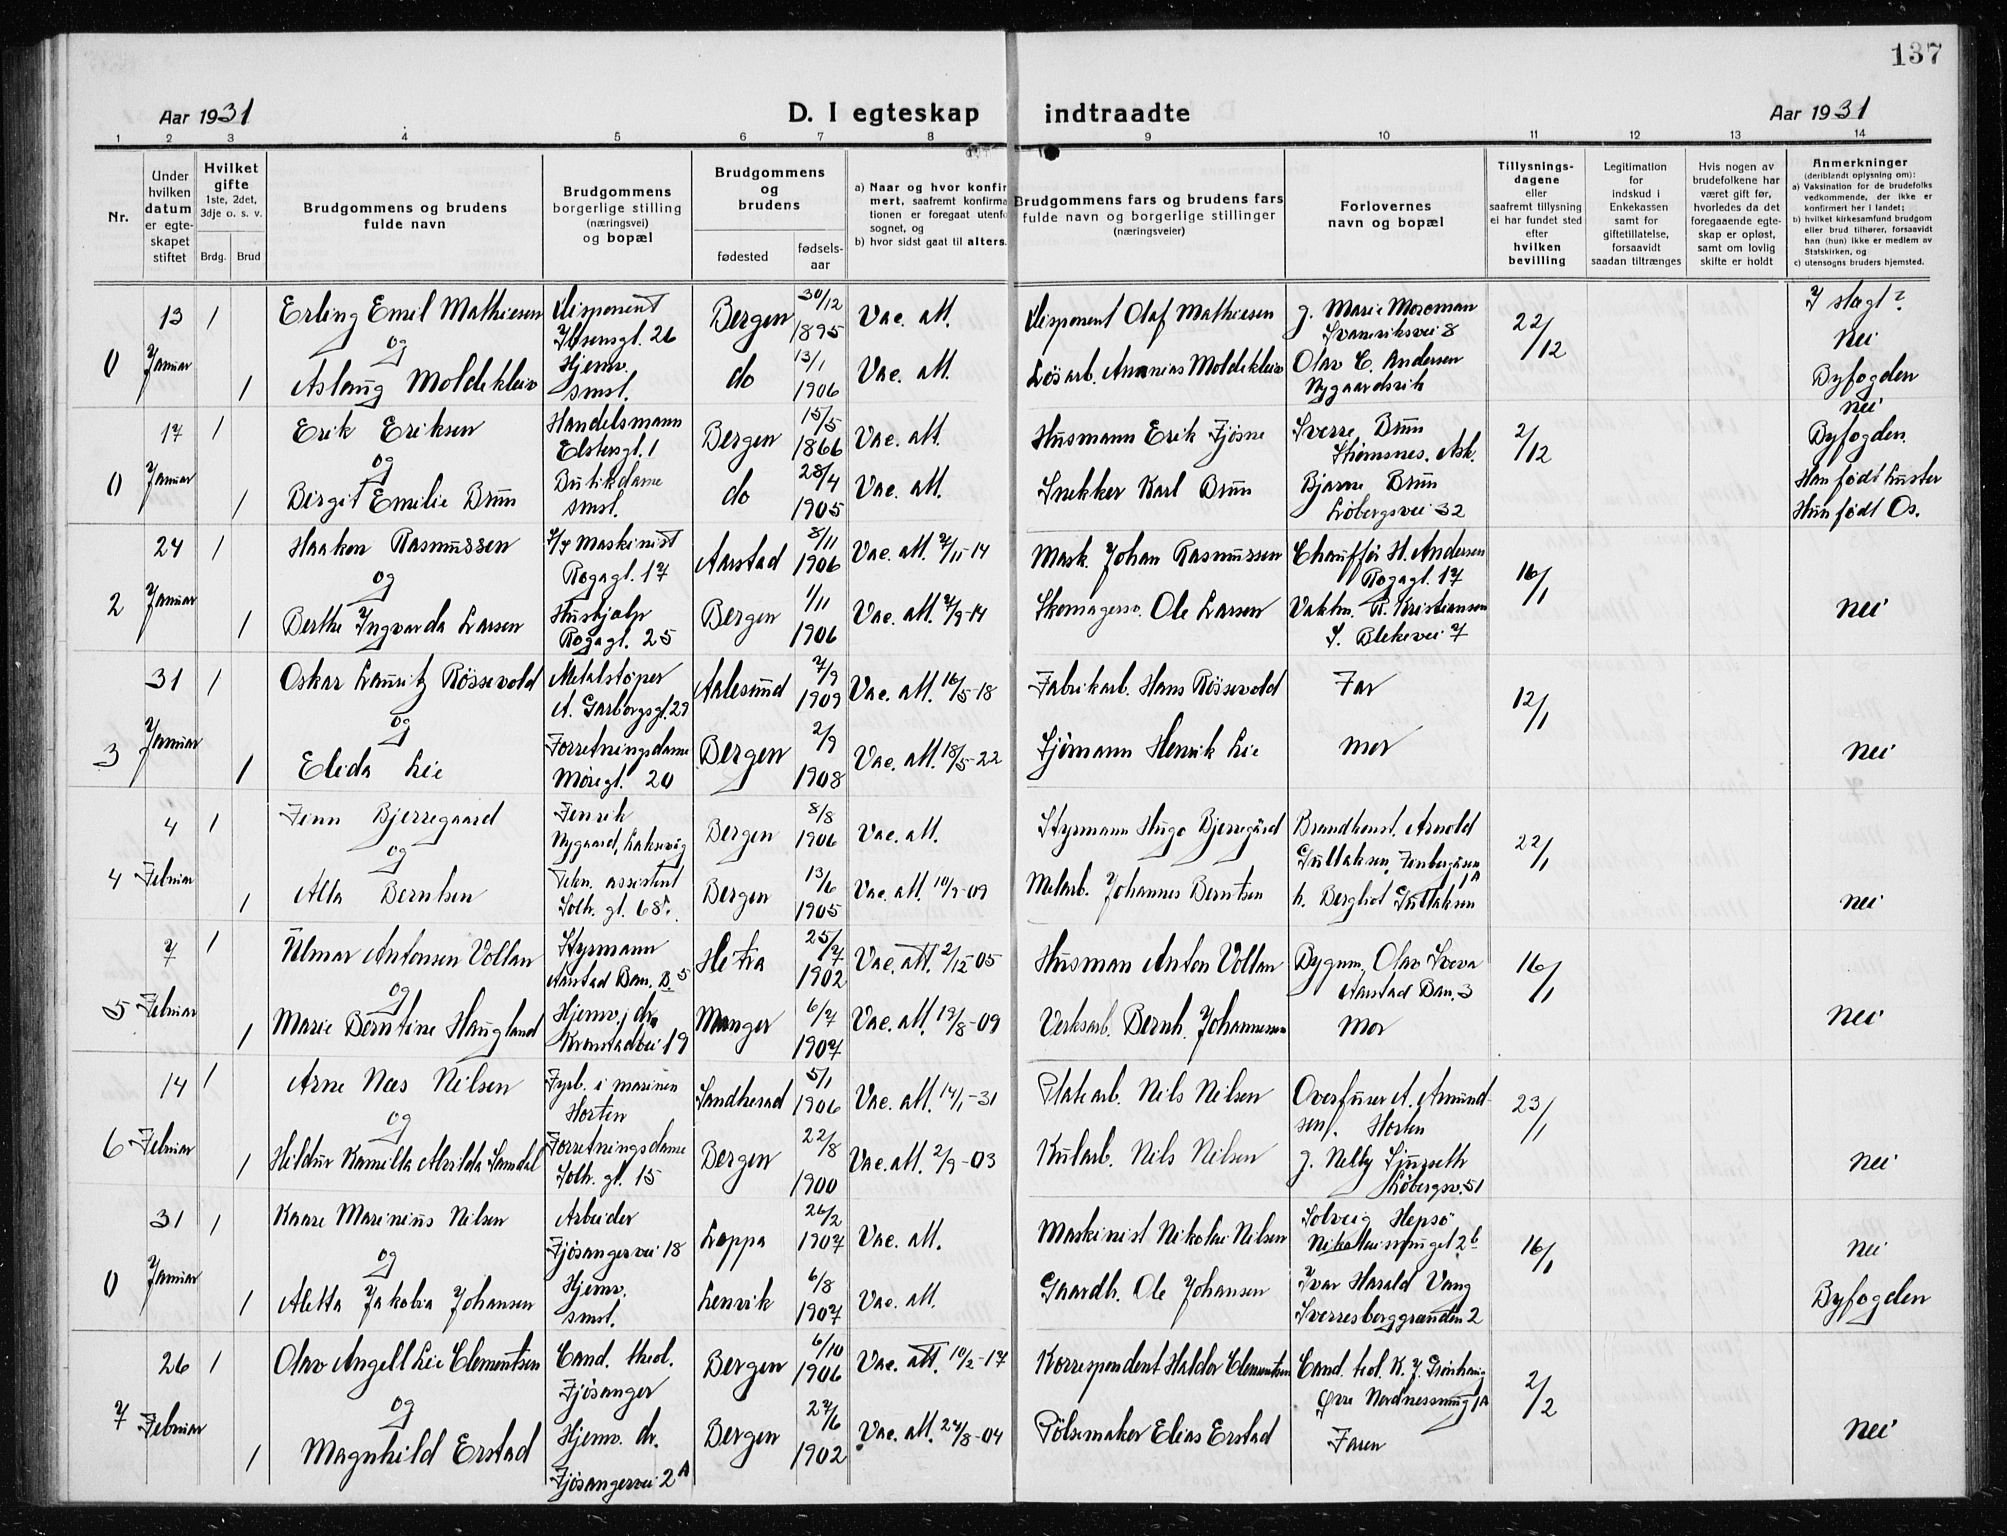 137
Aar 1931
D. I egteskap indtraadte
Aar 1931
1 2 3 4 5 6 7 8 9 10 11 12 13 14
Nr.
Under hvilken datum er egteskapet stiftet
Hvilket gifte 1ste, 2det, 3dje o. s. v.
Brdg. Brud
Brudgommens og brudens fulde navn
Brudgommens borgerlige stilling (næringsvei) og bopæl
Brudgommens og brudens
fødested
fødsels-aar
a) Naar og hvor konfirmert, saafremt konfirmationen er foregaat utenfor sognet, og
b) hvor sidst gaat til alters.
Brudgommens fars og brudens fars fulde navn og borgerlige stillinger (næringsveier)
Forlovernes navn og bopæl
Tillysnings-dagene eller saafremt tillysning ei har fundet sted efter hvilken bevilling
Legitimation for indskud i Enkekassen samt for giftetillatelse, forsaavidt saadan tiltrænges
Hvis nogen av brudefolkene har været gift før, hvorledes da det foregaaende egteskap er opløst, samt om lovlig skifte er holdt
Anmerkninger (deriblandt oplysning om):
a) Vaksination for de brudefolks vedkommende, der ikke er konfirmert her i landet;
b) hvilket kirkesamfund brudgom eller brud tilhører, forsaavidt han (hun) ikke er medlem av Statskirken, og
c) utensogns bruders hjemsted.
0 13 Januar 1 Erling Emil Mathiesen Disponent Ibsensgt. 26 Bergen 30/12 1895 Vac. att. Disponent Olaf Mathiesen g. Marie Mosoman Svaneviksvei 8 22/12 I slegt? Nei
og
1 Aslaug Moldekleiv Hjemv. smst. do 13/1 1906 Vac. att. Løsarb. Ananias Moldekleiv Olav C. Andersen Nygaardsvik Byfogden
0 17 Januar 1 Erik Eriksen Handelsmann Elstersgt. 1 Bergen 15/5 1866 Vac. att. Husmann Erik Fjøsne Sverre Brun Strømsnes, Ask. 2/12 nei Byfogden.
og
1 Birgit Emilie Brun Butikdame smst. do 28/4 1905 Vac. att. Snekker Karl Brun Bjarne Brun Løbergsvei 32 Han født Luster Hun født Os.
2 24 Januar 1 Haakon Rasmussen Maskinist Rogagt. 17 Aarstad 8/11 1906 Vac. att. 2/11-14 Mask. Johan Rasmussen Chauffør H. Andersen Rogagt. 17 16/1
og
1 Berthe Ingvarda Larsen Hushjælp Rogagt. 25 Bergen 1/11 1906 Vac. att. 7/9-14 Skomagersv. Ole Larsen Vaktm. R. Kristiansen S. Blekevei 7 Nei
3 31 Januar 1 Oskar Lauritz Røssevold Metalstøper A. Garborgsgt. 29 Aalesund 7/9 1909 Vac. att. 16/5-18 Fabrikarb. Hans Røssevold Far 12/1
og
1 Elida Lie Forretningsdame Møregt. 20 Bergen 2/9 1908 Vac. att. 18/5-22 Sjømann Henrik Lie mor Nei
4 4 Februar 1 Finn Bjerregaard Fenrik Nygaard, Laksevåg Bergen 8/8 1906 Vac. att. Styrmann Hugo Bjerregård Brandkonst. Arnold Gullaksen, 22/1
og
1 Alta Berntsen Teln. assistent Solh. gt. 68 Bergen 13/6 1905 Vac. att. 10/9-09 Metarb. Johannes Berntsen h. Bergliot Gullaksen Nei
5 7 Februar 1 Ulmar Antonsen Vollan Styrmann Aarstad Ban. B 5 Hitra 25/7 1902 Vac. att. 2/12-05 Husman Anton Vollan Bygnm. Olav Sveva Aarstad Ban. 3 16/1
og
1 Marie Berntine Haugland Hjemv. dr. Kronstadvei 19 Manger 6/7 1907 Vac. att. 19/8-09 Verksarb. Bernh. Johannesen Mor Nei
6 14 Februar 1 Arne Næs Nilsen Fyrb. i marinen Horten Sandherad 5/1 1906 Vac. att. 14/1-31 Platearb. Nils Nilsen Overfurer A. Amundsen, Horten 23/1
og
1 Hildur Kamilla Alvilda Samdal Forretningsdame Solh. gt. 15 Bergen 22/8 1900 Vac. att. 2/9-03 Kularb. Nils Nilsen g. Nelly Løbergsv. 51 Nei
0 31 Januar 1 Kaare Marinius Nilsen Arbeider Fjøsangervei 18 Loppa 26/2 1907 Vac. att. Maskinist Nikolai Nilsen Solveig Hepsø Nikolaismuget 2b 16/1 Nei
og
1 Aletta Jakobia Johansen Hjemv. smst. Lenvik 6/8 1907 Vac. att. Gaardb. Ole Johansen Ivar Harald Vang Sverresborggrænden 2 Byfogden
7 26 Februar 1 Olav Angell Lie Clementsen Cand. theol. Fjøsanger Bergen 6/10 1906 Vac. att. 10/2-17 Korrespondent Haldor Clementsen Cand. teol. K. J. Grønhaug Øvre Nordnessmug 1A 2/2
og
1 Magnhild Erstad Hjemv. dr. Fjøsangervei 2A Bergen 27/6 1902 Vac. att. 24/8-04 Pølsemaker Elias Erstad Faren Nei